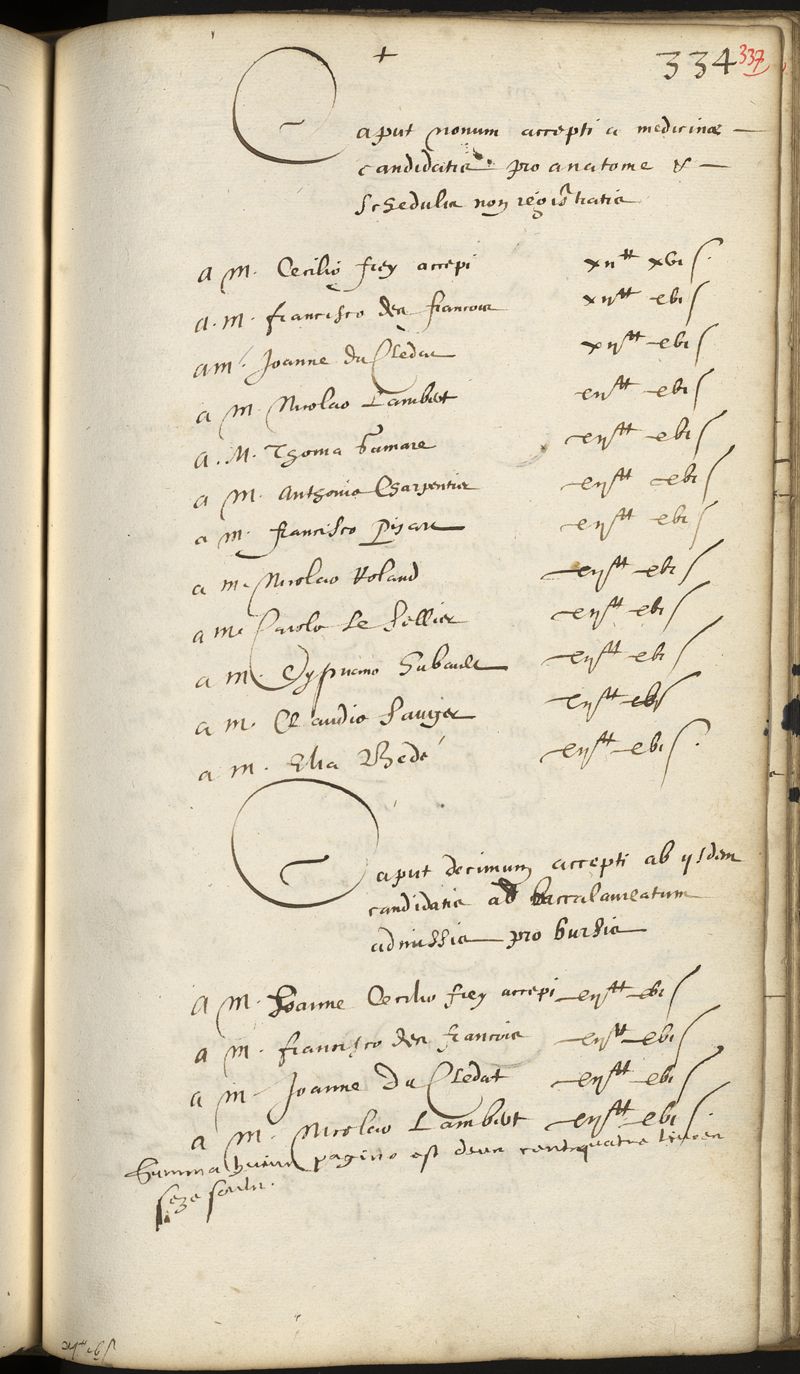 +
334 337
Caput nonum accepti a medicinæ
candidatis pro anatome &
schedulis non registratis
a M. Cecilio frey accepi xii tt xvi s.
a. M. francisco des francois xii tt xvi s
a M. Joanne du Cledat xii tt xvi s
a M. Nicolao Lambert xii tt xvi s
a. M. Thoma Gamare xii tt xvi s
a M. Anthonio Charpentier xii tt xvi s
a M. francisco Pijart xii tt xvi s
a M. Nicolao Roland xii tt xvi s
a M. Carolo Le Sellier xii tt xvi s
a M. Cypriano Hubault xii tt xvi s
a M. Claudio Sauger xii tt xvi s
a M. Elia Bedé xii tt xvi s.
Caput decimum accepti ab ijsdem
candidatis ad baccalaureatum
admissis pro bursis
a M. Joanne Cecilio frey accepi xii tt xvi s
a M. francisco des francois xii tt xvi s
a M. Joanne Du Cledat xii tt xvi s
a M. Nicolao Lambert xii tt xvi s.
Summa huius pagino est deux cent quatre livres
seze soulz.